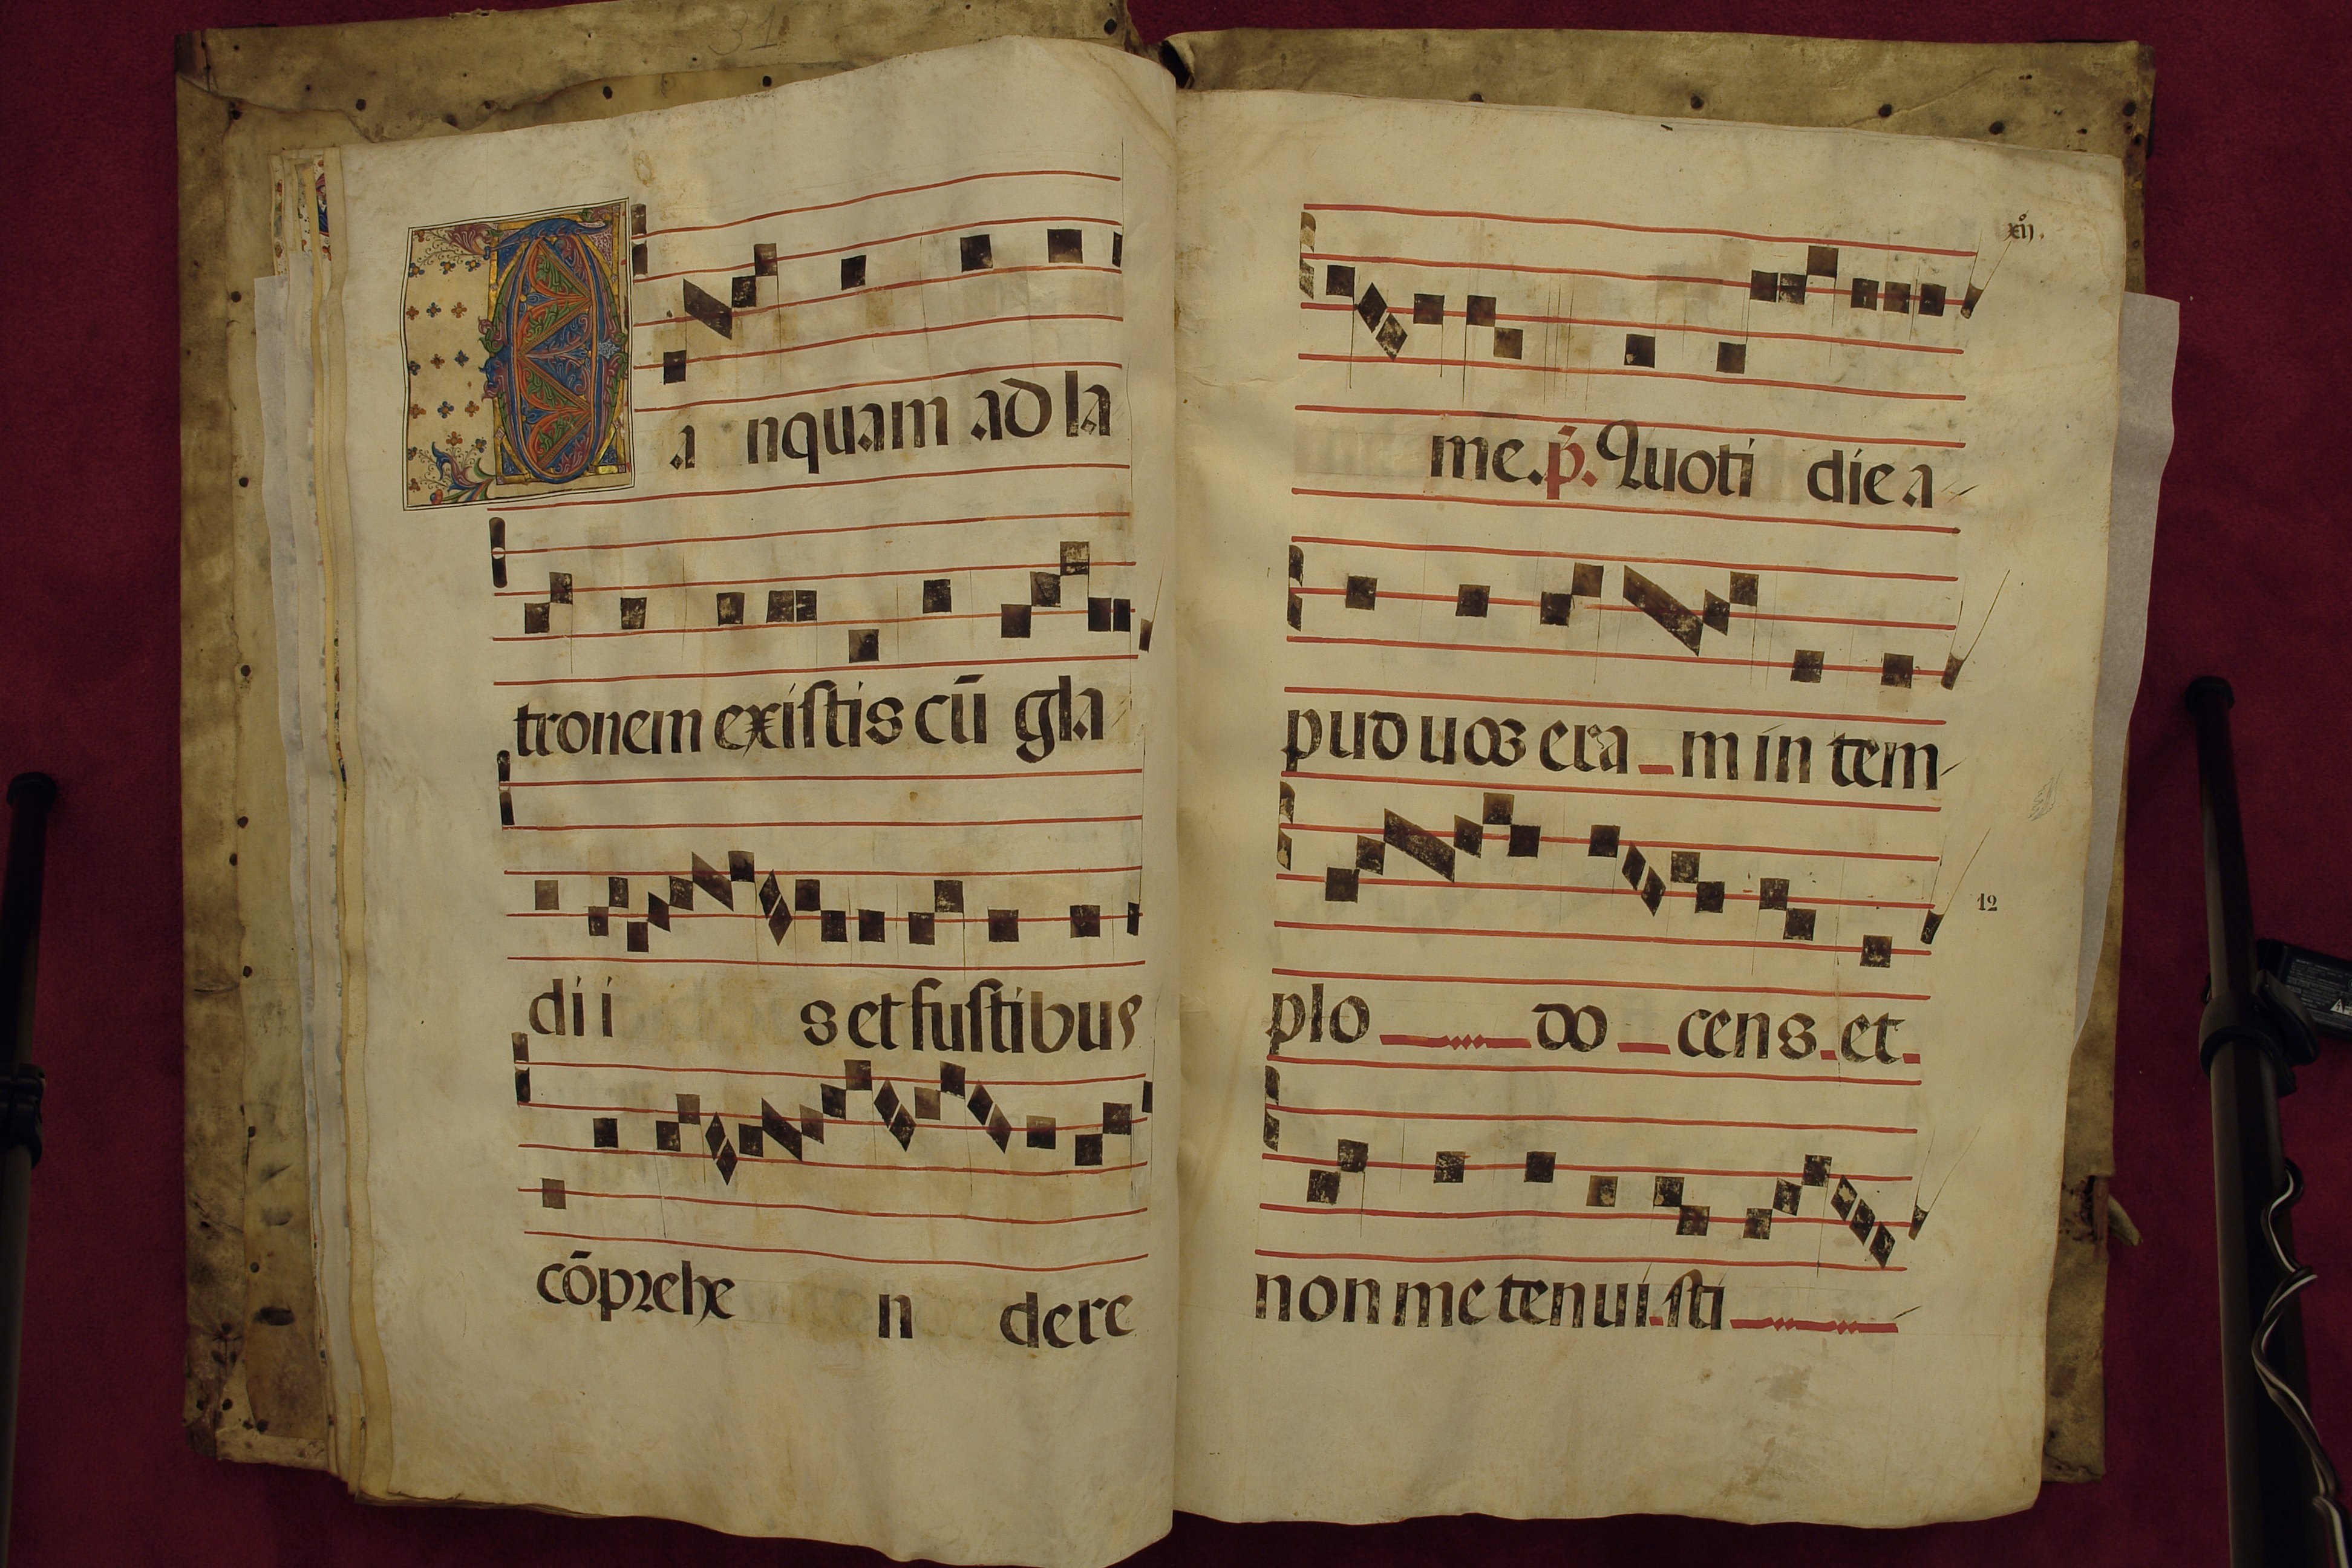 31
Ta nquam ad la
tronem existis cū gla
di i s et fustibus
cōprehe n dere
xij.
me. p̄. Quoti die a
pud uos era m in tem
12
plo do cens. et
non me tenui sti